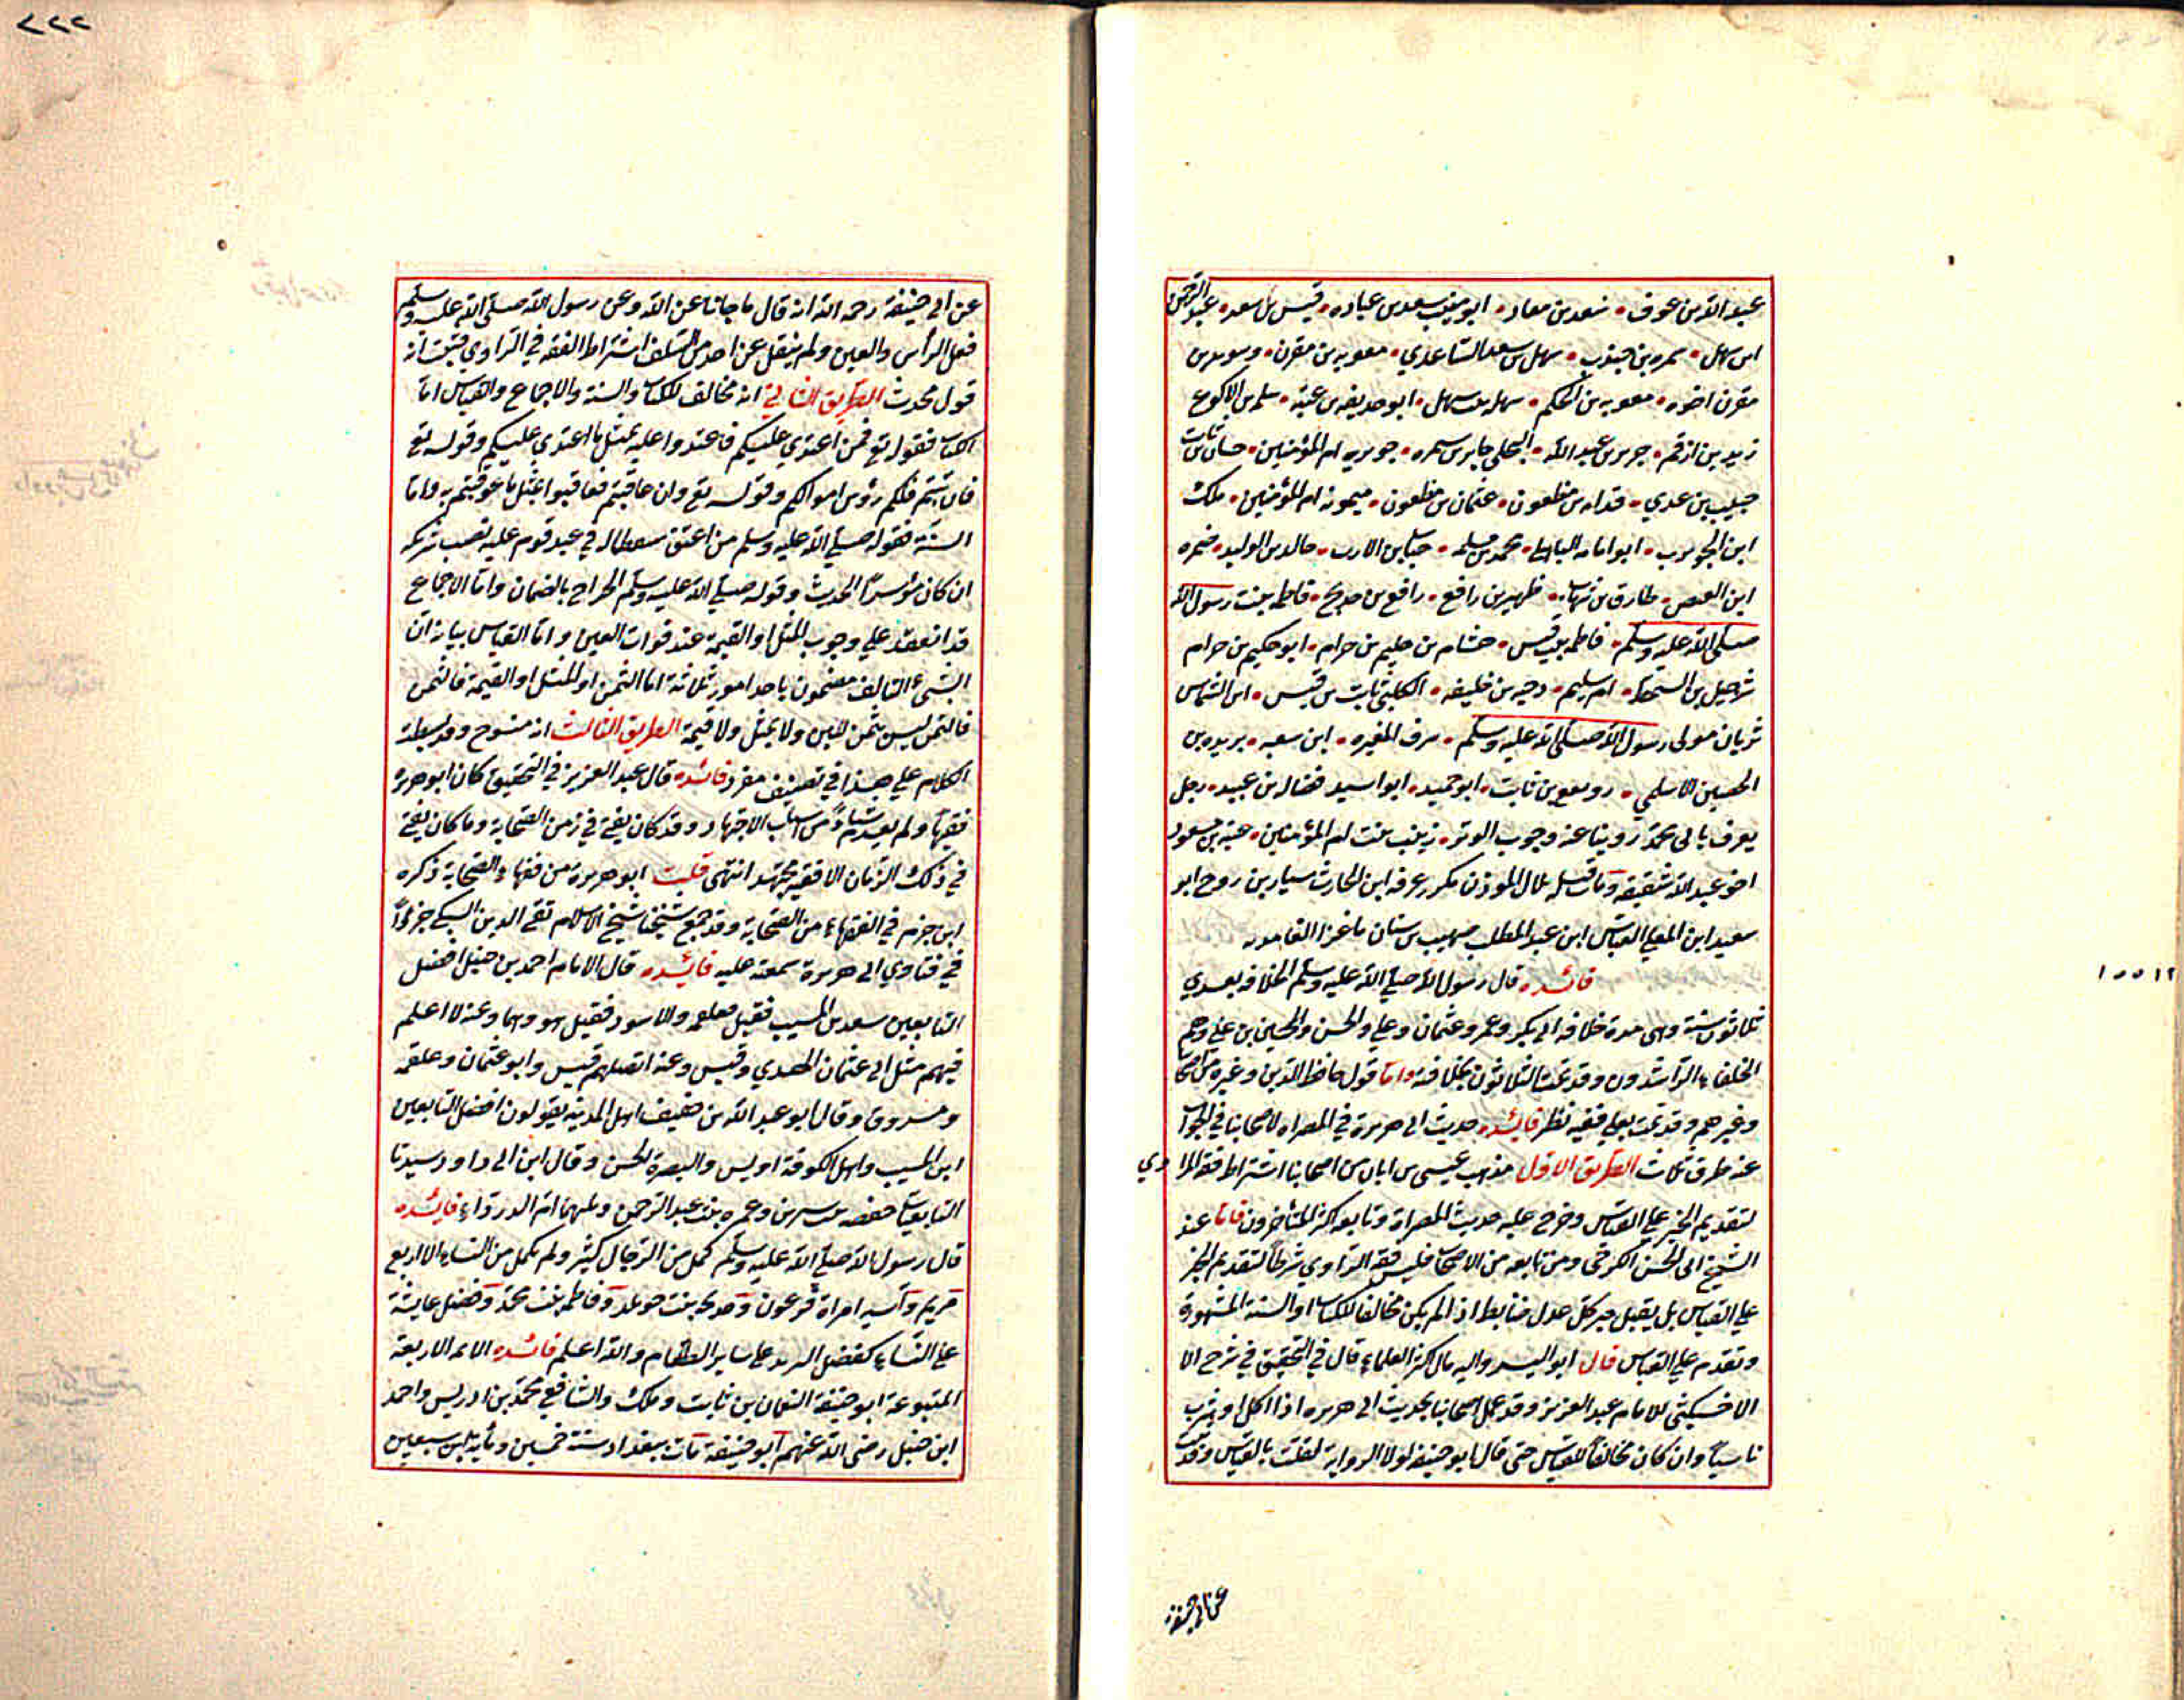 عبد الله بن عوف • سعد بن معاد • ابو سعد بن عباده • قيس بن سعد • عبد الرحمن
ابن سهل • سمره بن جندب • سهل بن سعد الساعدي • معويه بن مقرن • وسويد بن
مقرن اخوه • معويه بن الحكم • سهله بنت سهل • ابو حديفه بن عتبة • سلمه بن الاكوع
زيد بن ارقم • جرير بن عبد الله • البجلي جابر بن سمره • جويريه ام المؤمنين • حسان بن ثابت
حبيب بن عدي • قدامه بن مظعون • عثمان بن مظعون • ميمونه ام المؤمنين • ملك
ابن الحويرث • ابو امامه الباهلي • محمد بن مسلمه • خباب بن الارت • خالد بن الوليد • ضمره
ابن العيص • طارق بن شهاب • ظهير بن رافع • رافع بن خديج • فاطمه بنت رسول الله
صلى الله عليه وسلم • فاطمه بنت قيس • هشام بن حكيم بن حزام • ابو حكيم بن حزام
شرحبيل بن السمط • ام سليم • دحيه بن خليفه • الكلبي ثابت بن قيس • ابن الشماس
ثوبان مولى رسول الله صلى الله عليه وسلم • سرف المغيره • ابن سعبه • بريده بن
الحصين الاسلمي • رويفع بن ثابت • ابو حميد • ابو اسيد فضاله بن عبيد • رجل
يعرف بابى محمد روينا عنه وجوب الوتر • زينب بنت ام المؤمنين • عتبه بن مسعود
اخو عبد الله شقيقه ومات قبله بلال الموذن مكرر عرفه ابن الحارث سيار بن روح ابو
سعيد ابن المعلي العباس ابن عبد المطلب صهيب بن سنان ماعز الغامديه
فائده قال رسول الله صلي الله عليه وسلم الخلافه بعدي
ثلاثون سنة وهى مدة خلافه ابى بكر وعمر وعثمان وعلي والحسن والحسين بن علي وهم
الخلفاء الراشدون وقد تمت الثلاثون بخلافته واما قول حافظ الدين وغيره من اصحابنا
وغيرهم وقد تمت بعلي ففيه نظر فائده حديث ابى هريرة في المصراه لاصحابنا في الجواب
عنه طرق ثلاث الطريق الاول مذهب عيسى بن ابان من اصحابنا اشتراط فقه الراوي
لتقديم الخبر علي القياس وخرج عليه حديث المصراة وتابعه اكثر المتأخرون فاما عند
الشيخ ابى الحسن الكرخي ومن تابعه من الاصحاب فليس فقه الراوي شرطا لتقديم الخبر
علي القياس بل يقبل خبر كل عدل ضابط اذا لم يكن مخالفا للكتاب او السنة المشهورة
وتقدم علي القياس قال ابو اليسر واليه مال اكثر العلماء قال في التحقيق في شرح الا
الاخسيكثي للامام عبد العزيز وقد عمل اصحابنا بحديث ابى هريره اذا اكل او شرب
ناسياً وان كان مخالفاً للقياس حتى قال ابو حنيفه لولا الرواية لقلت بالقياس وقد ثبت
عن ابى حنيفة
١٥٥١٢
٧٢٢
عن ابى حنيفة رحمه الله انه قال ما جانا عن الله وعن رسول الله صلى الله عليه وسلم
فعلى الرأس والعين ولم ينقل عن احد من السلف اشتراط الفقه في الراوي فثبت انه
قول محدث الطريق الثاني انه مخالف للكتاب والسنة والاجماع والقياس اما
الكتاب فقوله تع فمن اعتدي عليكم فاعتدوا عليه بمثل ما اعتدي عليكم وقوله تع
فان تبتم فلكم رؤس اموالكم وقوله تع وان عاقبتم فعاقبوا بمثل ما عوقبتم به واما
السنة فقوله صلي الله عليه وسلم من اعتق شقصا له في عبد قوم عليه نصيب شريكه
ان كان موسراً الحديث وقوله صلي الله عليه وسلم الخراج بالضمان واما الاجماع
قد انعقد علي وجوب المثل او القيمة عند فوات العين واما القياس بيانه ان
الشيء التالف مضمون باحد امور ثلاثة اما الثمن او المثل او القيمة فالثمن
فالتمر ليس بثمن للبن ولا بمثل ولا قيمة الطريق الثالث انه منسوخ وقد بسطت
الكلام علي هذا في تصنيف مفرد فائده قال عبد العزيز في التحقيق كان ابو هريره
فقيهاً ولم يعدم شيئاً من اسباب الاجتهاد وقد كان يفتى في زمن الصحابة وما كان يفتى
في ذلك الزمان الا فقيه مجتهد انتهى قلت ابو هريرة من فقهاء الصحابة ذكره
ابن حزم في الفقهاء من الصحابة وقد جمع شيخنا شيخ الاسلام تقى الدين السبكي جزءاً
في فتاوي ابى هريرة سمعته عليه فائده قال الامام احمد بن حنبل افضل
التابعين سعيد بن المسيب فقيل فعلقمه والاسود فقيل هو وهما وعنه لا اعلم
فيهم مثل ابى عثمان النهدي وقيس وعنه افضلهم قيس وابو عثمان وعلقمه
ومسروق وقال ابو عبد الله بن خفيف اهل المدينه يقولون افضل التابعين
ابن المسيب واهل الكوفة اويس والبصرة الحسن وقال ابن ابى داود سيدتا
التابعيات حفصه بنت سيرين وعمره بنت عبد الرحمن ويليهما ام الدرداء فائده
قال رسول الله صلي الله عليه وسلم كمل من الرجال كثير ولم يكمل من النساء الا اربع
مريم وآسيه امراة فرعون وخديجه بنت خويلد وفاطمه بنت محمد وفضل عايشة
علي النساء كفضل الثريد علي ساير الطعام والله اعلم فائده الائمه الاربعة
المتبوعة ابو حنيفة النعمان بن ثابت وملك والشافعي محمد بن ادريس واحمد
ابن حنبل رضى الله عنهم ابو حنيفة مات ببغداد سنة خمسين ومأية ابن سبعين